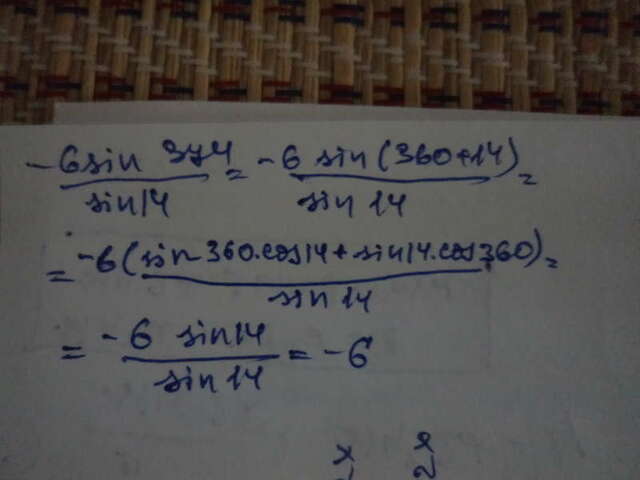 -6sin 374/sin14 = -6 sin(360+14)/sin 14 =
= -6(sin 360.cos14+sin14.cos360)/sin 14 =
= -6 sin14/sin 14 = -6
x x
2 2